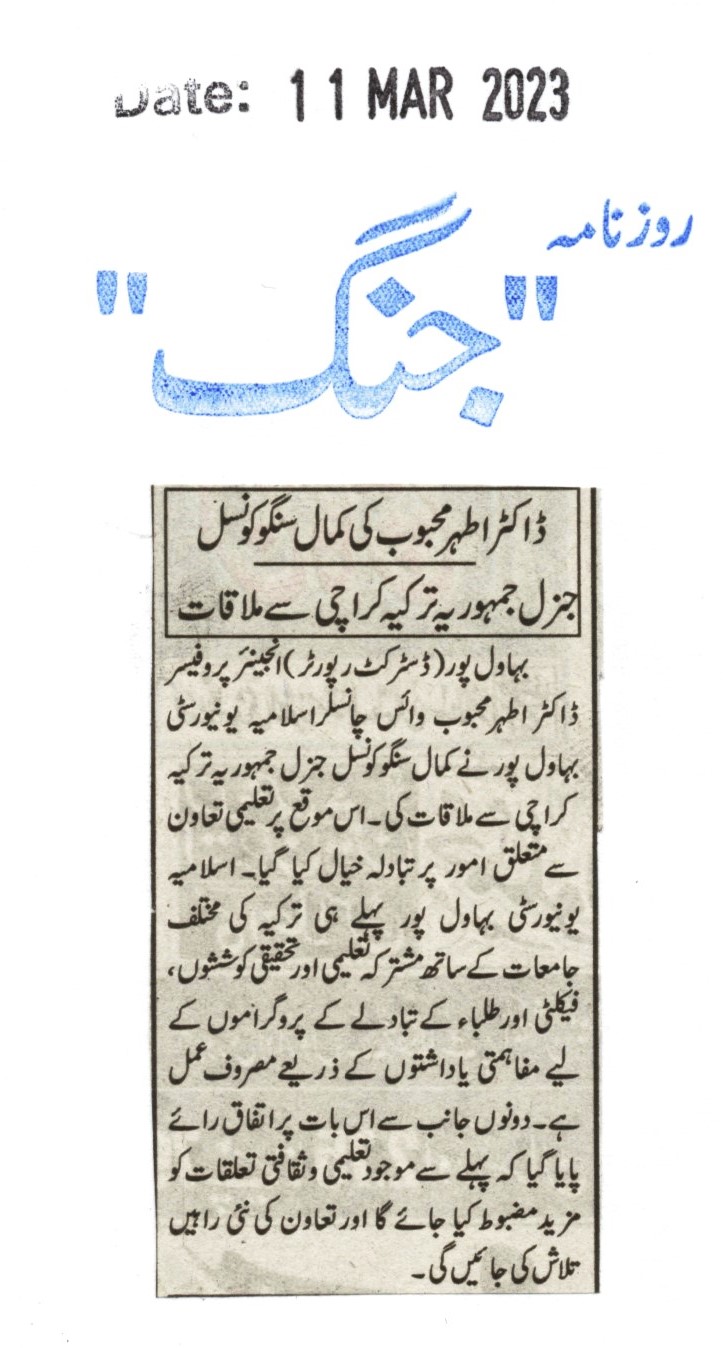 Date: 11 MAR 2023
روزنامہ
"جنگ"
ڈاکٹر اطہر محبوب کی کمال سنگو کونسل
جنرل جمہوریہ ترکیہ کراچی سے ملاقات
بہاول پور (ڈسٹرکٹ رپورٹر) انجینئر پروفیسر
ڈاکٹر اطہر محبوب وائس چانسلر اسلامیہ یونیورسٹی
بہاول پور نے کمال سنگو کونسل جنرل جمہوریہ ترکیہ
کراچی سے ملاقات کی۔ اس موقع پر تعلیمی تعاون
سے متعلق امور پر تبادلہ خیال کیا گیا۔ اسلامیہ
یونیورسٹی بہاول پور پہلے ہی ترکیہ کی مختلف
جامعات کے ساتھ مشترکہ تعلیمی اور تحقیقی کوششوں،
فیکلٹی اور طلباء کے تبادلے کے پروگراموں کے
لیے مفاہمتی یاداشتوں کے ذریعے مصروف عمل
ہے۔ دونوں جانب سے اس بات پر اتفاق رائے
پایا گیا کہ پہلے سے موجود تعلیمی و ثقافتی تعلقات کو
مزید مضبوط کیا جائے گا اور تعاون کی نئی راہیں
تلاش کی جائیں گی۔